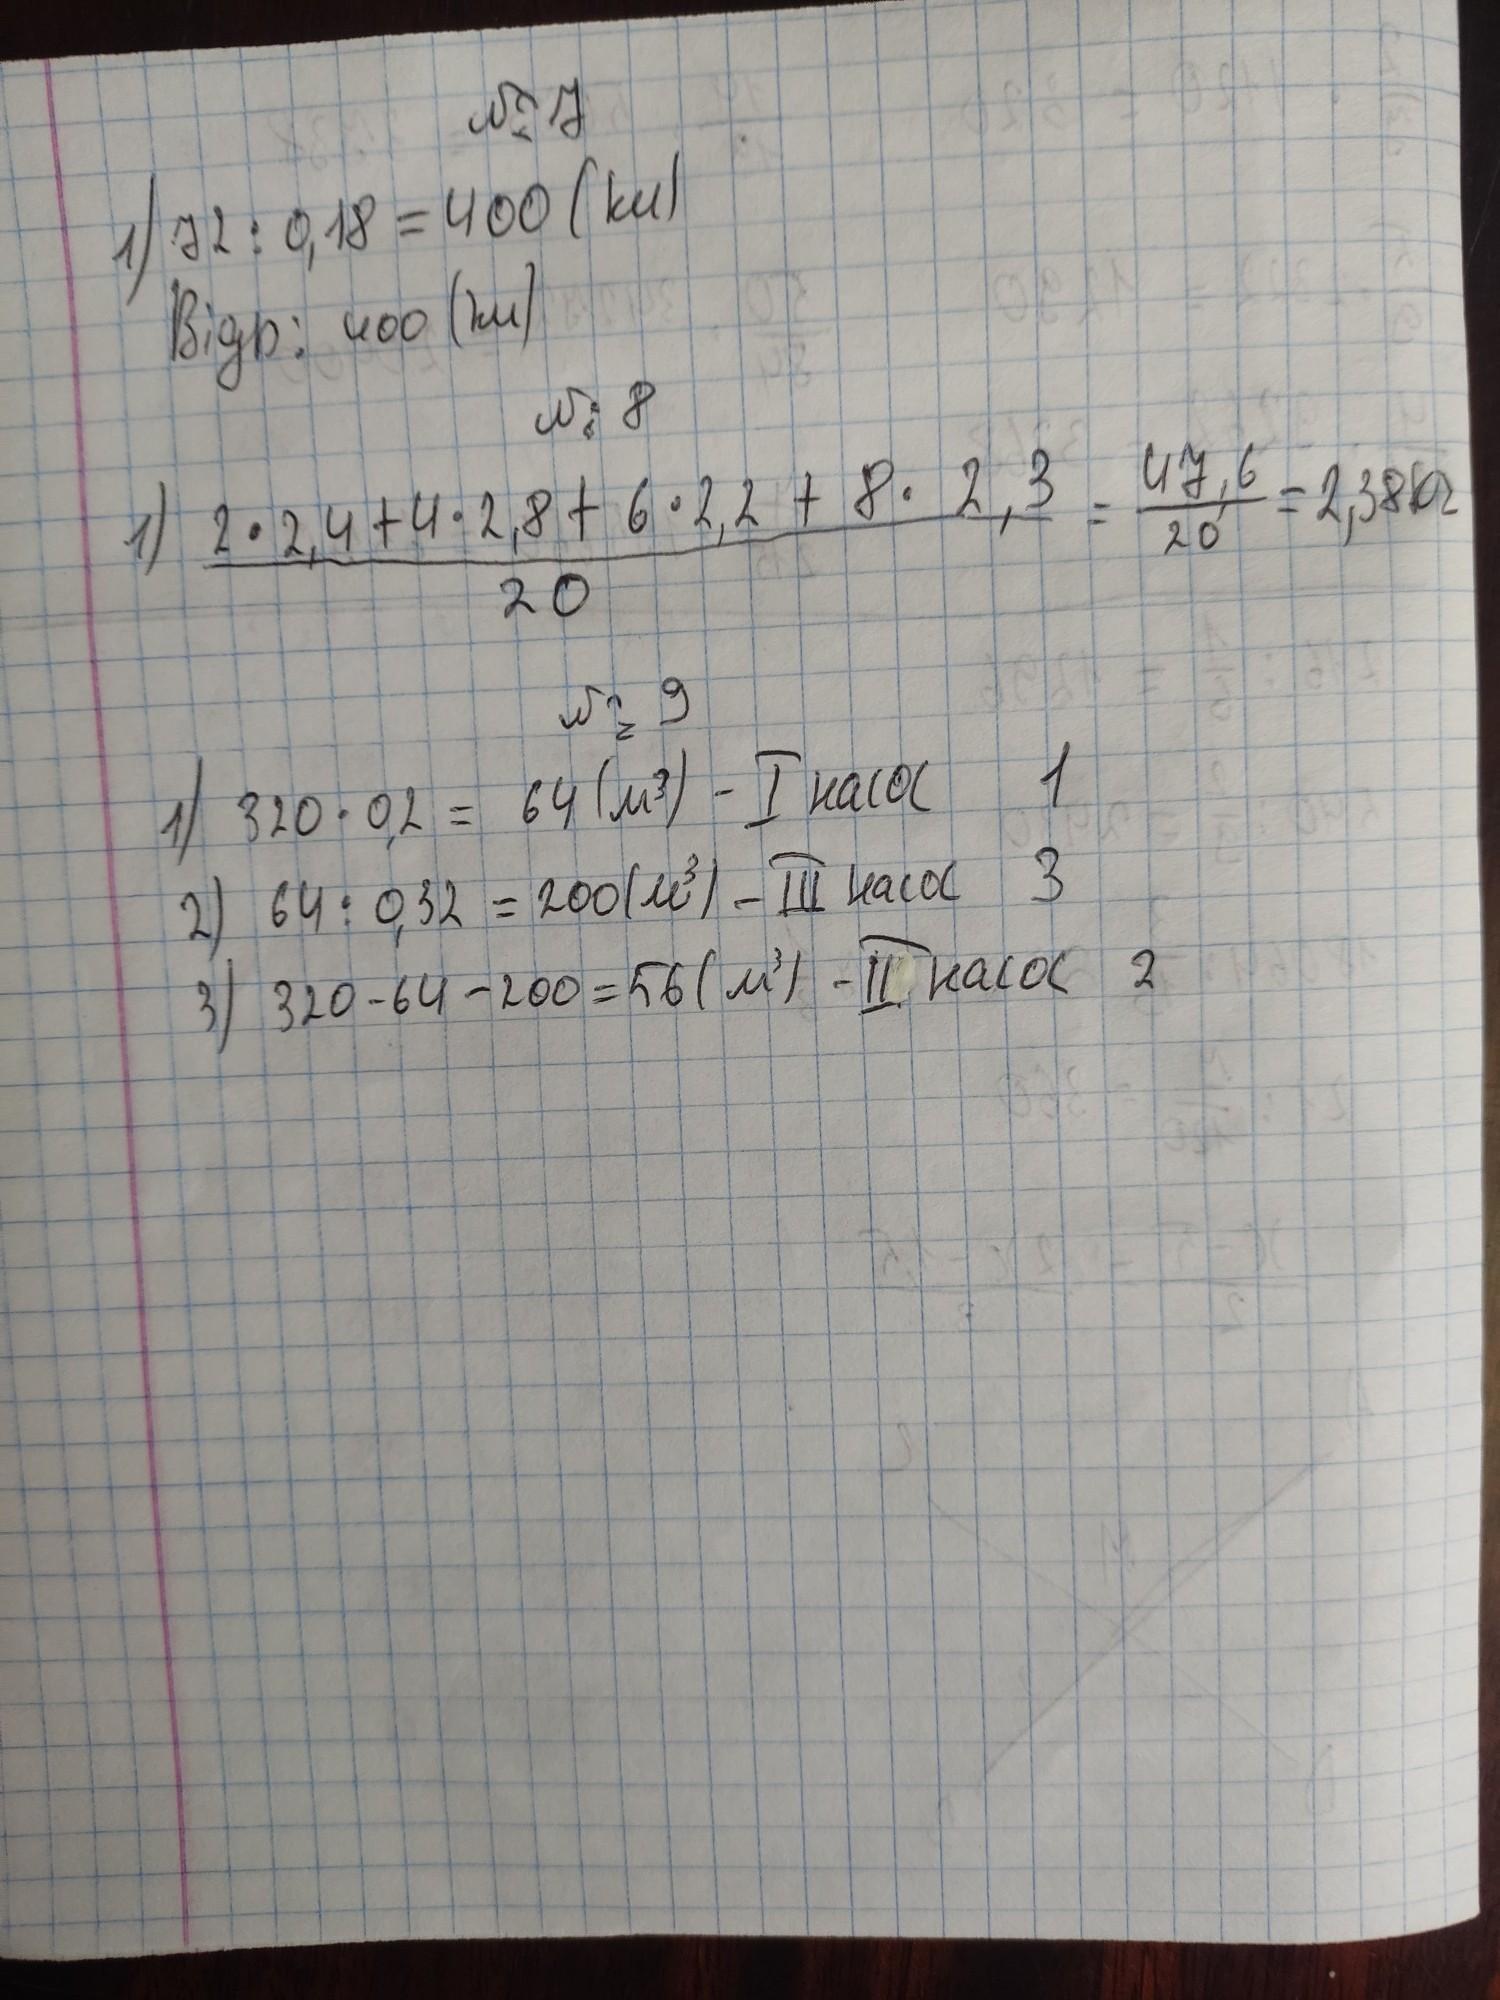 № 7
1) 72 : 0,18 = 400 (км)
Відр: 400 (км)
№ 8
1) 2 · 2,4 + 4 · 2,8 + 6 · 2,2 + 8 · 2,3 = 47,6 = 2,38 кг
20 20
№ 9
1) 320 · 0,2 = 64 (м³) - I насос 1
2) 64 : 0,32 = 200 (м³) - III насос 3
3) 320 - 64 - 200 = 56 (м³) - II насос 2